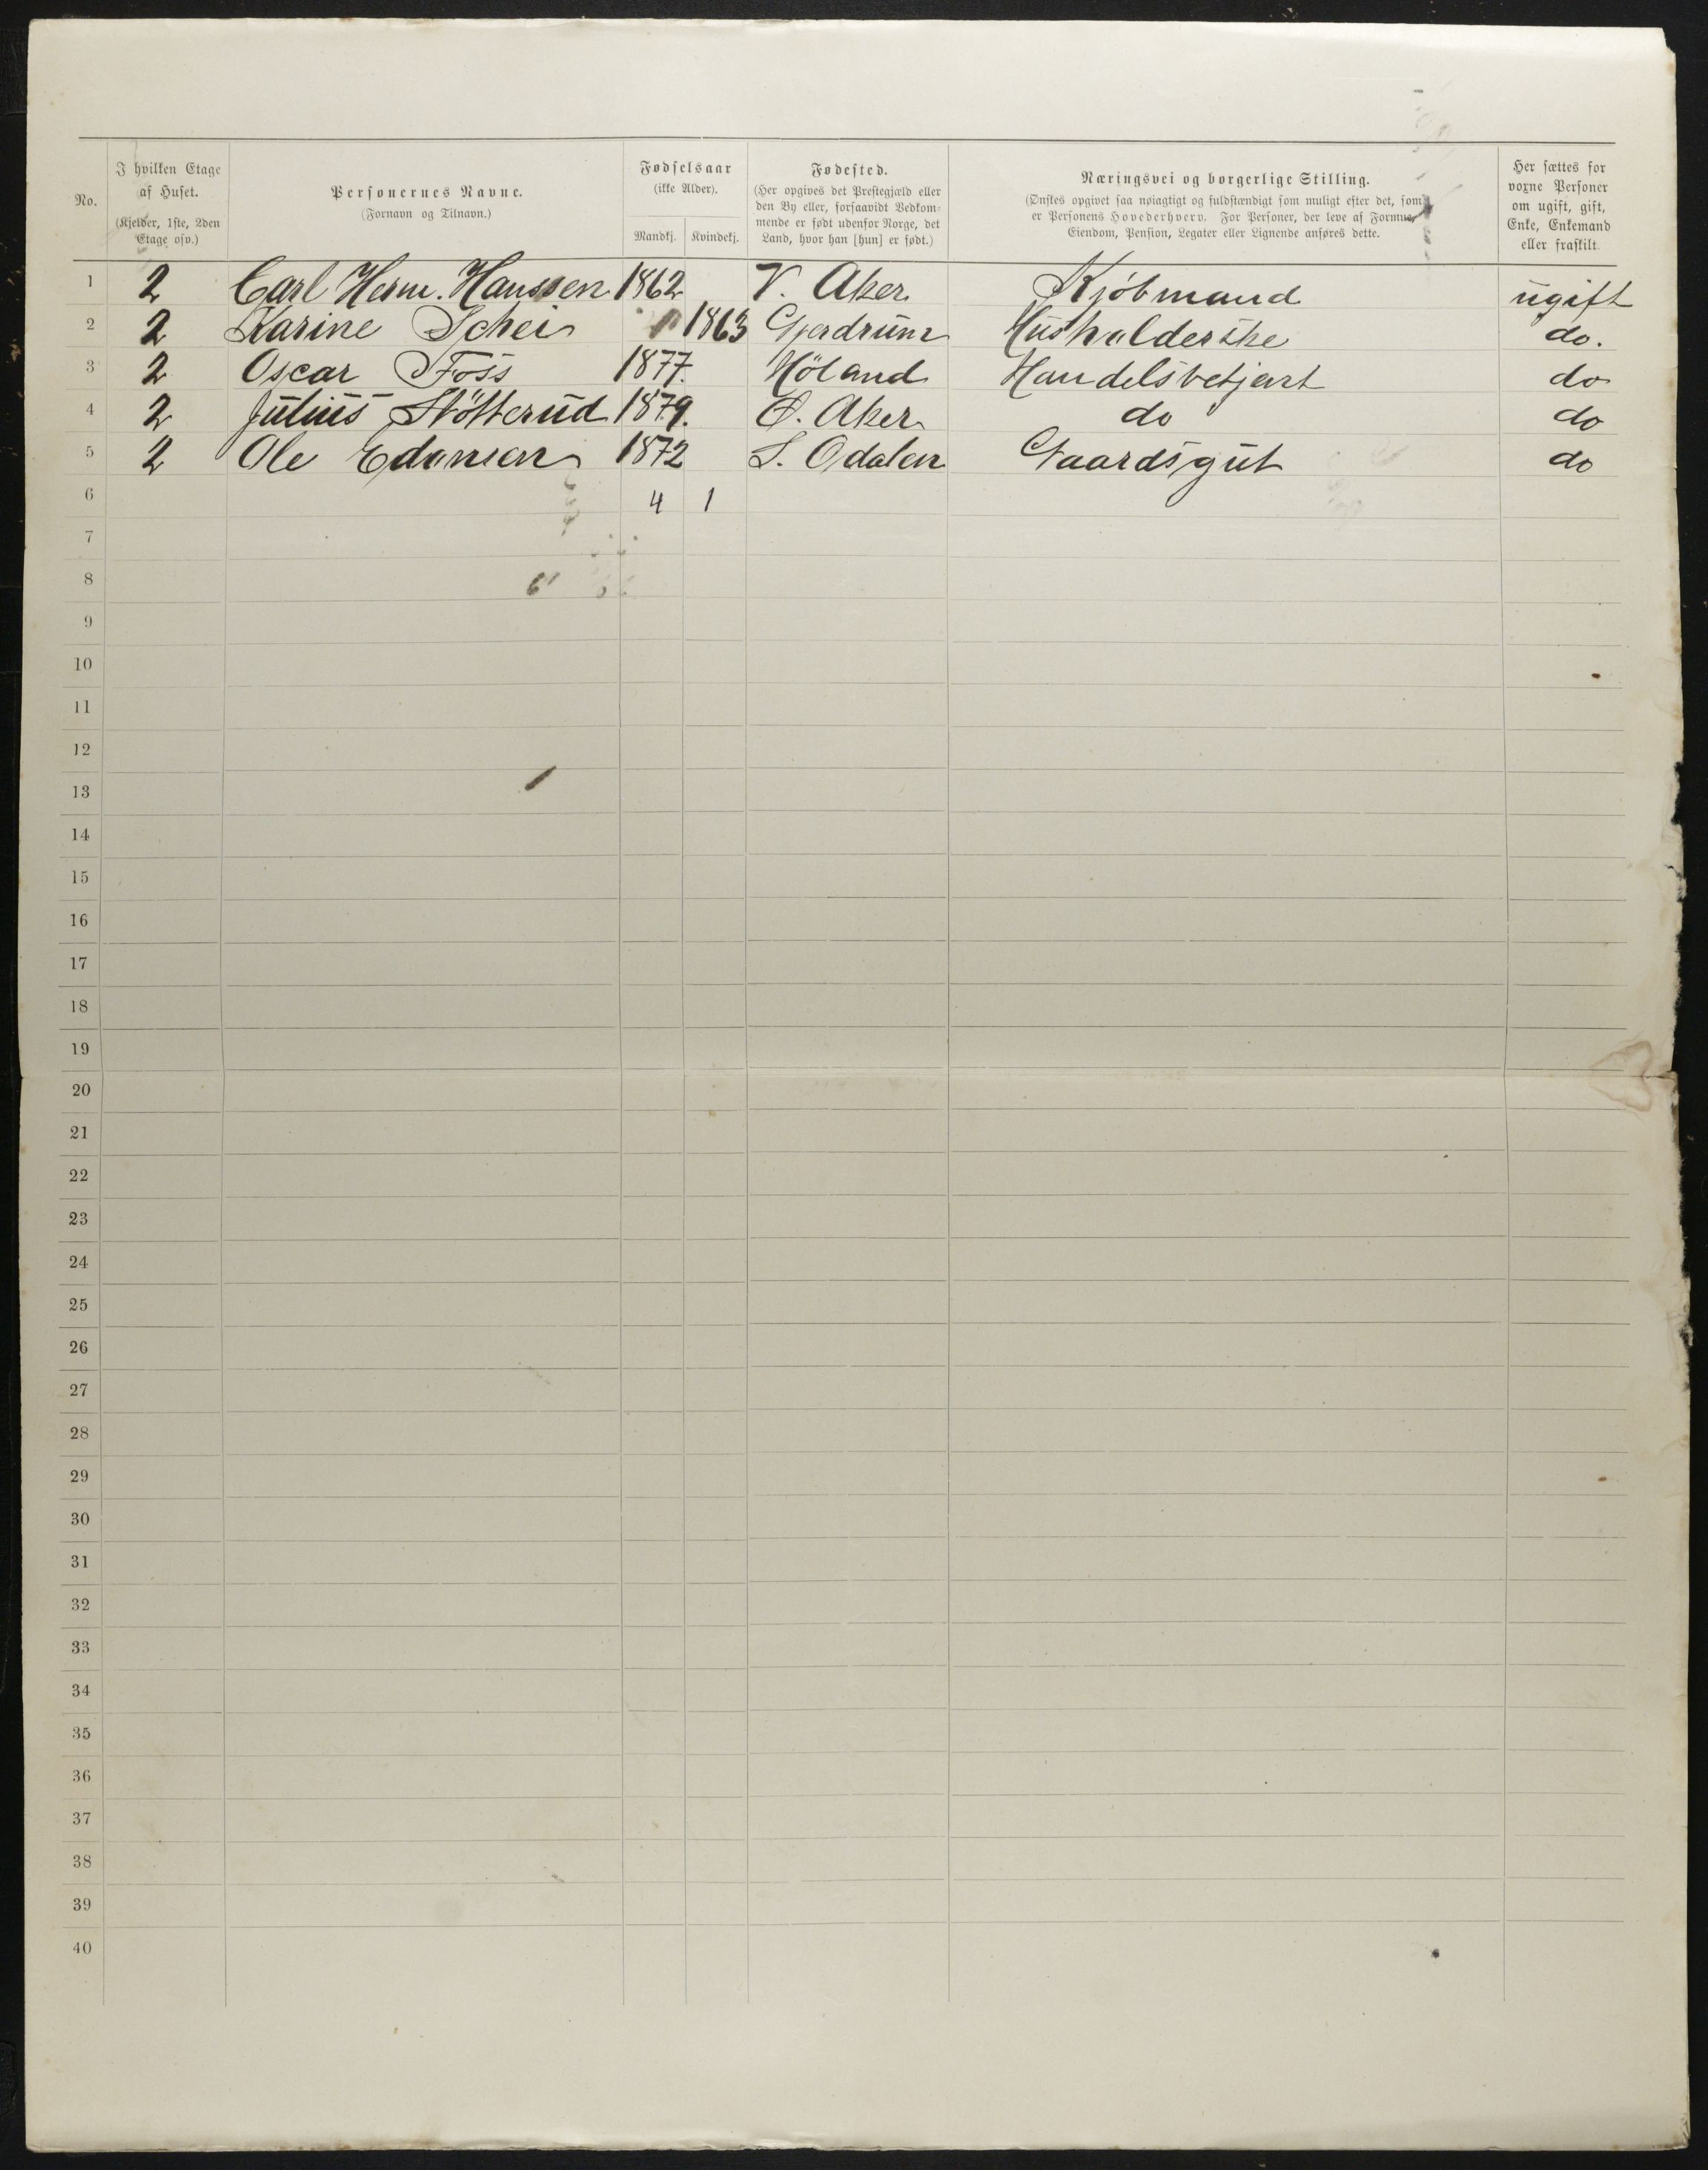 No.
I hvilken Etage af Huset.
(Kjelder, 1ste, 2den Etage osv.)
Personernes Navne.
(Fornavn og Tilnavn.)
Fødselsaar
(ikke Alder).
Mandkj. Kvindekj.
Fødested.
(Her opgives det Prestegjæld eller
den By eller, forsaavidt Vedkom-
mende er født udenfor Norge, det
Land, hvor han [hun] er født.)
Næringsvei og borgerlige Stilling.
(Ønskes opgivet saa nøiagtigt og fuldstændigt som muligt efter det, som
er Personens Hovederhverv. For Personer, der leve af Formue,
Eiendom, Pension, Legater eller Lignende anføres dette.
Her sættes for
voxne Personer
om ugift, gift,
Enke, Enkemand
eller fraskilt
1 2 Carl Herm. Hanssen 1862 V. Aker Kjöbmand ugift
2 2 Karine Schei 1863 Gjerdrum Husholderske do.
3 2 Oscar Foss 1877. Höland Handelsbetjent do
4 2 Julius Stötterud 1879. Ö. Aker do do
5 2 Ole 1872 S. Odalen Gaardsgut do
6 4 1
7
8
9
10
11
12
13
14
15
16
17
18
19
20
21
22
23
24
25
26
27
28
29
30
31
32
33
34
35
36
37
38
39
40